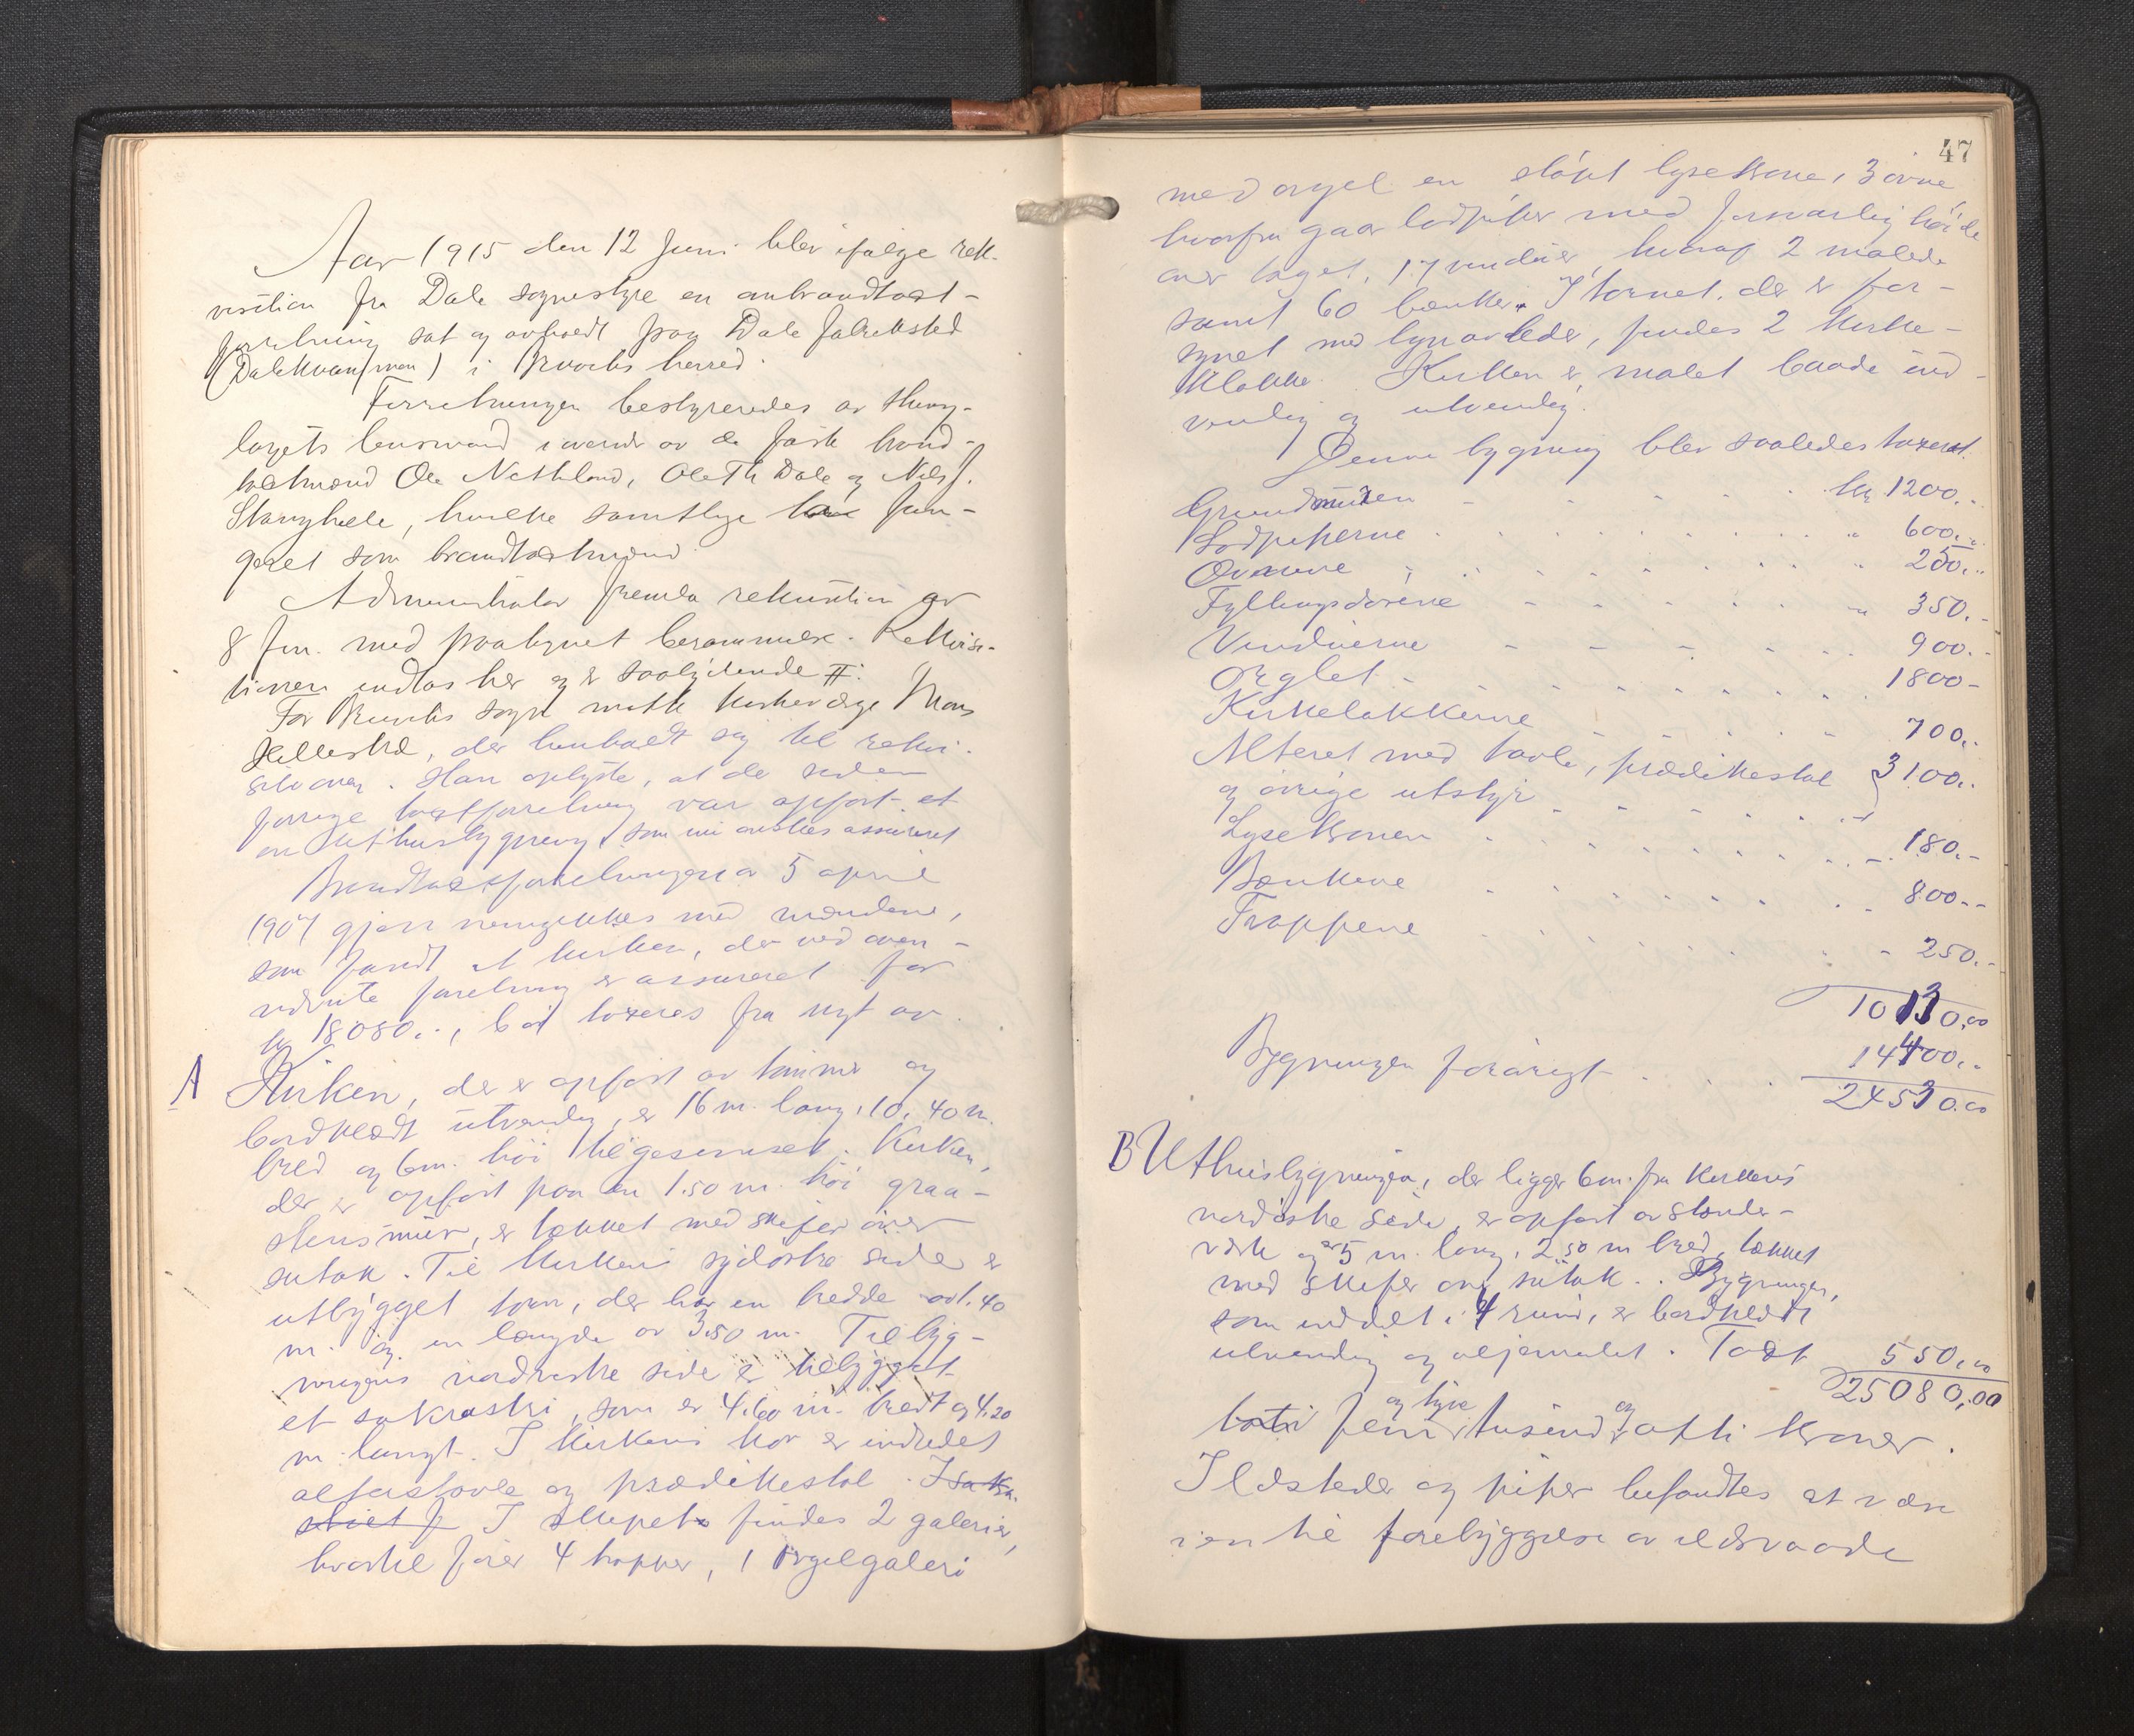 Aar 1915 den 12 Juni blev ifølge rek-
visition fra Dale sognestyre en ombrandtaxt-
forretning sat og avholdt paa Dale fabriksted
(Dalekvam/men) i Bruviks herred.
Forretningen bestyreredes av thing-
lagets lensmand i nærvær av de faste brand-
taxtmænd Ole Nethland, Ole Th Dale og Nils J.
Stanghelle, hvilke samtlige har fun-
geret som brandtaxtmænd.
Administrator fremla rekvisition av
8 Jun. med paategnet berammelse. Rekvisi-
tionen indtas her og er saalydende #:
For Bruviks sogn møtte kirkeverge Mons
Hellestræ, der henholdt sig til rekvi-
sitionen. Han oplyste, at der siden
forrige taxtforretning var opført et
en uthusbygning, som nu ønskes assureret
Brandtaxtforretningen av 5 april
1907 gjen nemgikkes med mændene,
som fandt at kirken, der ved oven-
nævnte forretning er assureret for
kr 18080.-, bør taxeres fra nyt av.
A Kirken, der er opført av tømmer og
bordklædt utvendig, er 16 m. lang, 10,40 m.
bred og 6m. høi til gesimset. Kirken,
der er opført paa en 1.50 m. høi graa-
stensmur, er tækket med skifer over
sutak. Til kirkens sydøstre side er
utbygget torn, der har en bredde av 1.40
m. og en længde av 3.50 m. Til byg-
ningens nordvestre side er tilbygget
et sakresti, som er 4.60 m. bredt og 4.20
m. langt. I kirkens kor er indredet
altertavle og prædikestol. I sakri-
stiet f I skipet findes 2 galerier,
hvortil fører 4 trapper, 1 orgelgaleri
47
med orgel en støpt lysekrone, 3 ovne
hvorfra gaar lodpiper med forsvarlig høide
over taget, 17 vinduer, hvoraf 2 malede
samt 60 bænker. I tornet, der er for-
synet med lynavleder, findes 2 kirke-
klokker. Kirken er malet baade ind-
vendig og utvendig.
Denne bygning blev saaledes taxeret.
Grundmuren - - - kr 1200.-
Lodpiperne - - - " 600.-
Ovnene - - - " 250.-
Fyllingsdørene - - - " 350.-
Vinduerne - - - 900.-
Orglet - - - 1800-
Kirkeklokkerne - - - 700.-
Alteret med tavle, prædikestol } 3100.-
og øvrige utstyr - - -
Lysekronen - - - 180.-
Bænkene - - - 800.-
Trappene - - - 250.-
10130.00
Bygningen forøvrigt . . . 14400.-
24530.00
B Uthusbygningen, der ligger 6m. fra kirkens
nordøstre side, er opført av stender-
verk og er 5 m. lang, 2.50 m bred, tækket
med skifer over sutak. Bygningen,
som inddelt i 4 rum, er bordklædt
utvendig og oljemalet. Taxt 550.00
25080,00
og tyve og
fem tusind otti kroner.
Ildsteder og piper befandtes at være
i en til forebyggelse av ildsvaade